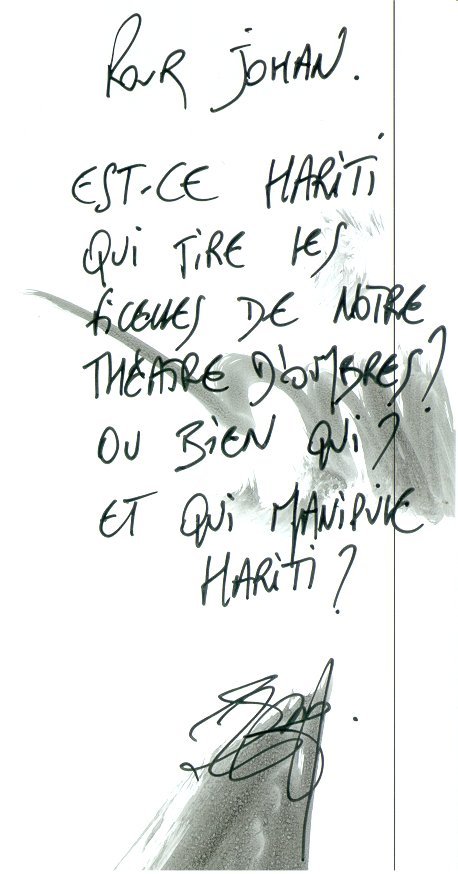 POUR JOHAN.
EST-CE HARITI
QUI TIRE LES
FICELLES DE NOTRE
THÉATRE D'OMBRES?
OU BIEN QUI?
ET QUI MANIPULE
HARITI?